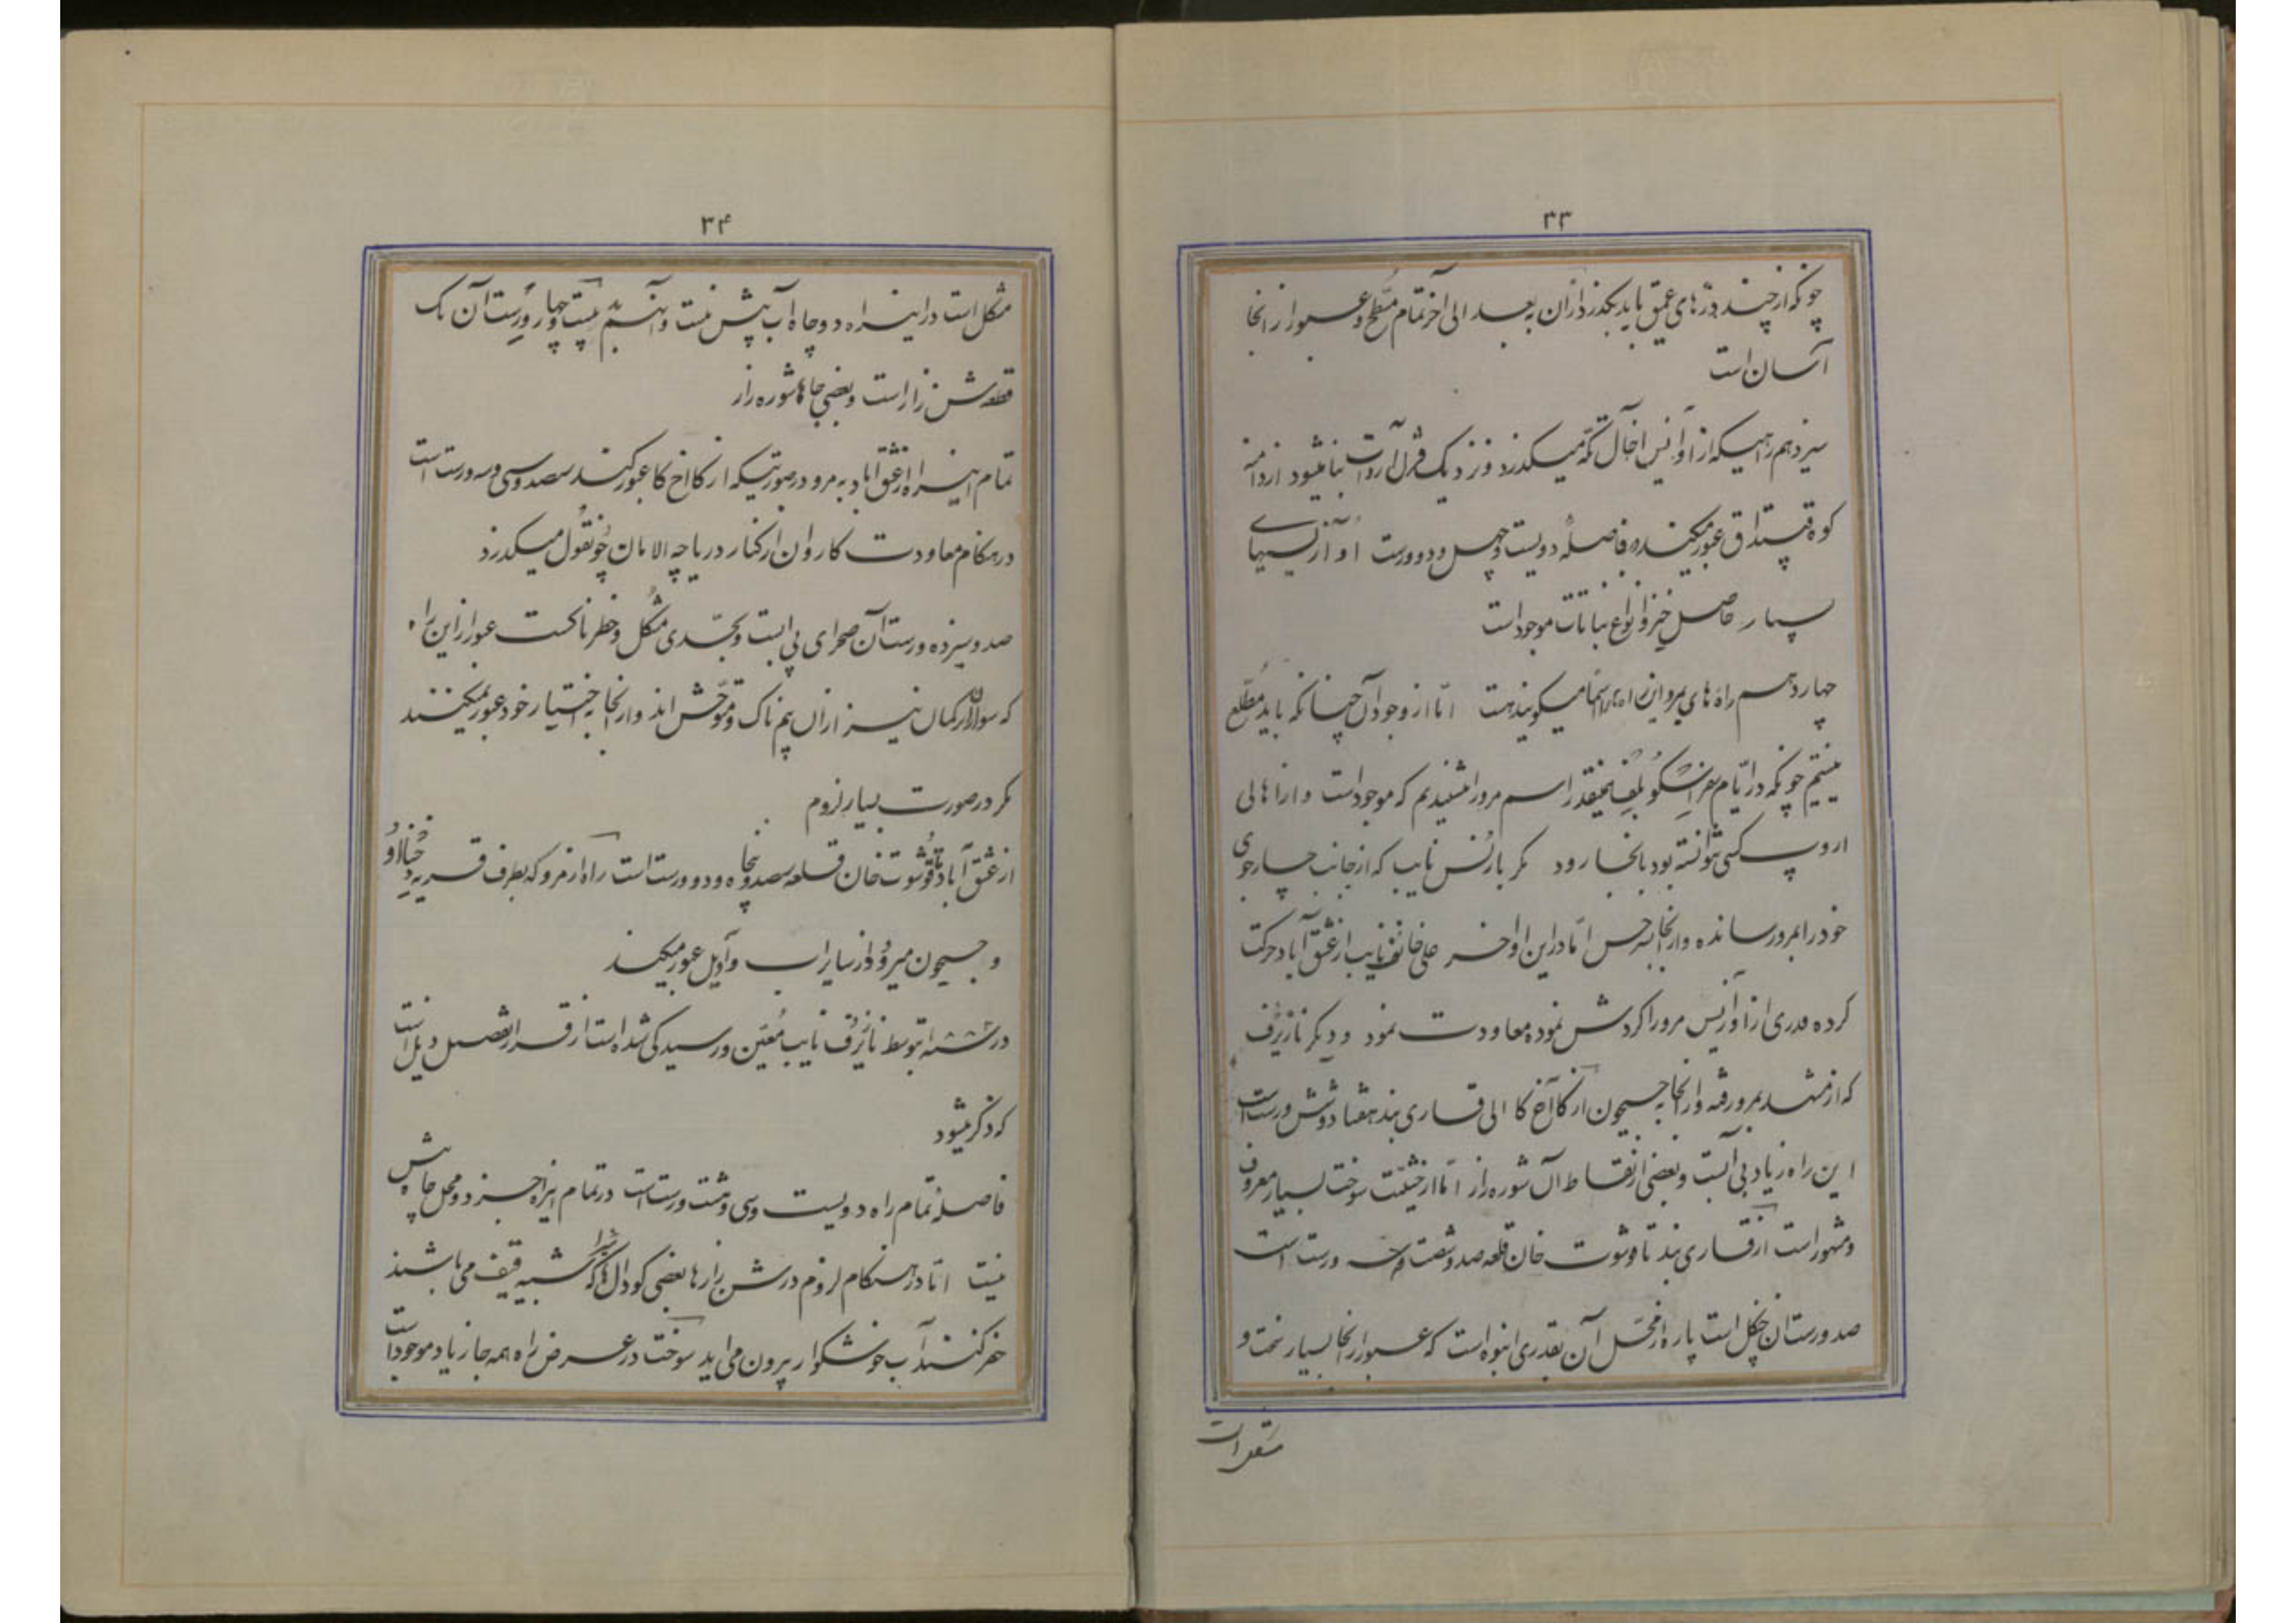 ۳۳
چونکه از چند درّهای عمیق باید بگذرد از آن به بعد الی آخر تمام مسطّح و عبور از آنجا
آسان است
سیزدهم راهیکه از اوآنیس اخال تکّه میگذرد و نزدیک قزل آروات بنا میشود از دامنه
کوه عبور میکند و فاصله دویست و چهل و دو ورست
بسیار حاصل خیز و انواع نباتات موجود است
چهاردهم راه های مرو این راه میگویند هست امّا از وجود آن چنانکه باید مطّلع
نیستیم چونکه در ایّام همینقدر اسم مرو را شنیدیم که موجود است و از اهالی
اروپ کسی نتوانسته بود بآنجا رود مگر بارنس نایب که از جانب چارجوی
خود را بمرو رسانده و از آنجا بسرخس امّا در این اواخر علی خانف نایب از عشق آباد حرکت
کرده قدری از اوآزیس مرو را گردش نموده معاودت نمود و دیگر نازیرُف
که از مشهد بمرو رفته و از آنجا به جیحون از کاآخ کا الی قاری بند هفتاد و شش ورست است
این راه زیاد بی آبست و بعضی از نقاط آن شوره زار امّا از حیثیّت سوخت بسیار معروف
و مشهور است از قاری بند تا قوشوت خان قلعه صد و شصت و سه ورست است
صد ورست آن جنگل است پاره از محل آن بقدری انبوه است که عبور از آنجا بسیار سخت و
مشکل است
۳۴
مشکل است در این راه دو چاه آب بیش نیست و آنهم بیست و چهار ورست آن یک
قطعه شن زار است و بعضی جاها شوره زار
تمام این راه از عشق آباد به مرو در صورتیکه از کاآخ کا عبور کنند سصد و سی و سه ورست است
در هنگام معاودت کاروان از کنار دریاچه الامان چونقول میگذرد
صد و سیزده ورست آن صحرای بی آبست و بحدّی مشکل و خطرناکست عبور از این راه
که سواران ترکمان نیز از آن بیم ناک و متوحّش اند و از آنجا به اختیار خود عبور نمیکنند
مگر در صورت بسیار لزوم
از عشق آباد تا قوشوت خان قلعه سصد و پنجاه و دو ورست است راه از مرو که بطرف قریه
و جیحون میرود از سایراب و آدیل عبور میکند
در توسط نازیرُف نایب مُعیّن و رسیدگی شده است از قرار تفصیل ذیل است
که ذکر میشود
فاصله تمام راه دویست و سی و هشت ورست است در تمام این راه جز دو محل چاهش
نیست امّا در هنگام لزوم در شن زارها بعضی گودال ها را که شبیه قیف می باشند
حفر کنند آب خوشگوار بیرون می اید سوخت در عرض راه همه جا زیاد موجود است